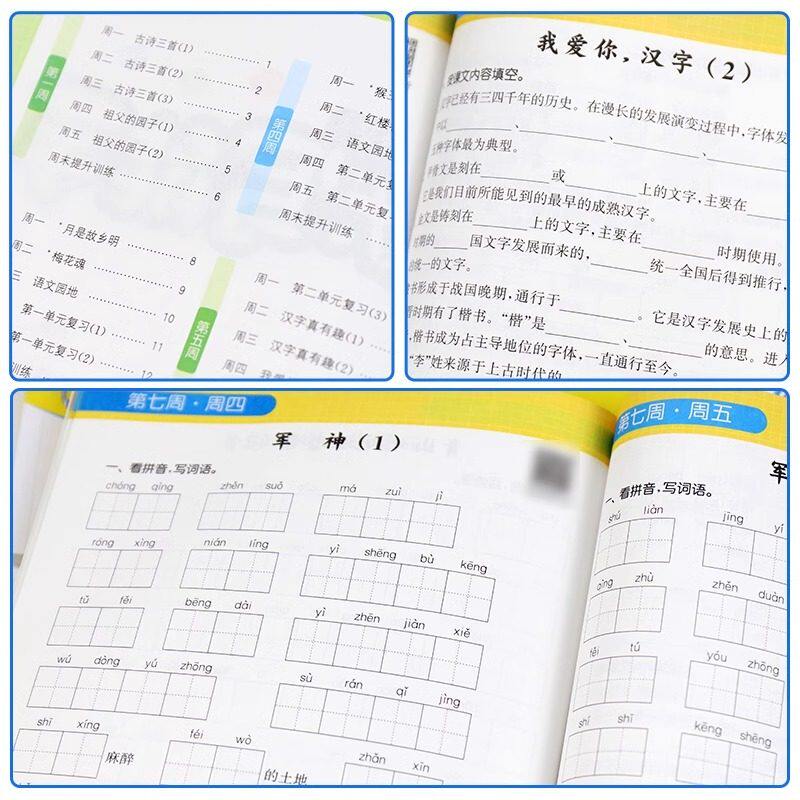 第一周
周一 古诗三首(1) 1
周二 古诗三首(2) 2
周三 古诗三首(3) 3
周四 祖父的园子(1) 4
周五 祖父的园子(2) 5
周末提升训练 6
周一 *月是故乡明 8
周二 *梅花魂 9
周三 语文园地 10
第一单元复习(1) 11
第一单元复习(2) 12
第四周
周一 *猴
周二 *红楼
周三 语文园地
周四 第二单元
周五 第二单元
周末提升训练
第五周
周一 第二单元复习(3)
周二 汉字真有趣(1)
周三 汉字真有趣(2)
周四 我
我爱你,汉字(2)
按课文内容填空。
字已经有三四千年的历史。在漫长的发展演变过程中,字体发
、 、 、
种字体最为典型。
骨文是刻在 或 上的文字,主要在
它是我们目前所能见到的最早的成熟汉字。
金文是铸刻在 上的文字,主要在 时期使用。
时期的 国文字发展而来的, 统一全国后得到推行,
的统一的文字。
书形成于战国晚期,通行于 。它是汉字发展史上的
晋时期有了楷书。“楷”是 、 的意思。进入
楷书成为占主导地位的字体,一直通行至今。
“李”姓来源于上古时代的
第七周·周四
军 神(1)
一、看拼音,写词语。
chóng qìng zhěn suǒ má zuì jì
róng xìng nián líng yì shēng bù kēng
tǔ fěi bēng dài yì zhēn jiàn xiě
wú dòng yú zhōng sù rán qǐ jìng
shī xíng 麻醉 fěi wò 的土地 zhǎn xīn
第七周·周五
军
一、看拼音,写词语。
shú liàn jīng yí
qìng zhù zhěn duàn
fěi tú yóu zhōng
shī shì kēng shēng